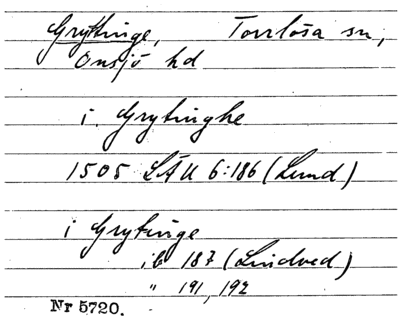 Gryttinge, Torrlösa sn,
Onsjö hd
i Grytinghe
1505 LÄU 6:186 (Lund)
i Grytinge
ib 187 (Lindved)
" 191, 192
Nr 5720.